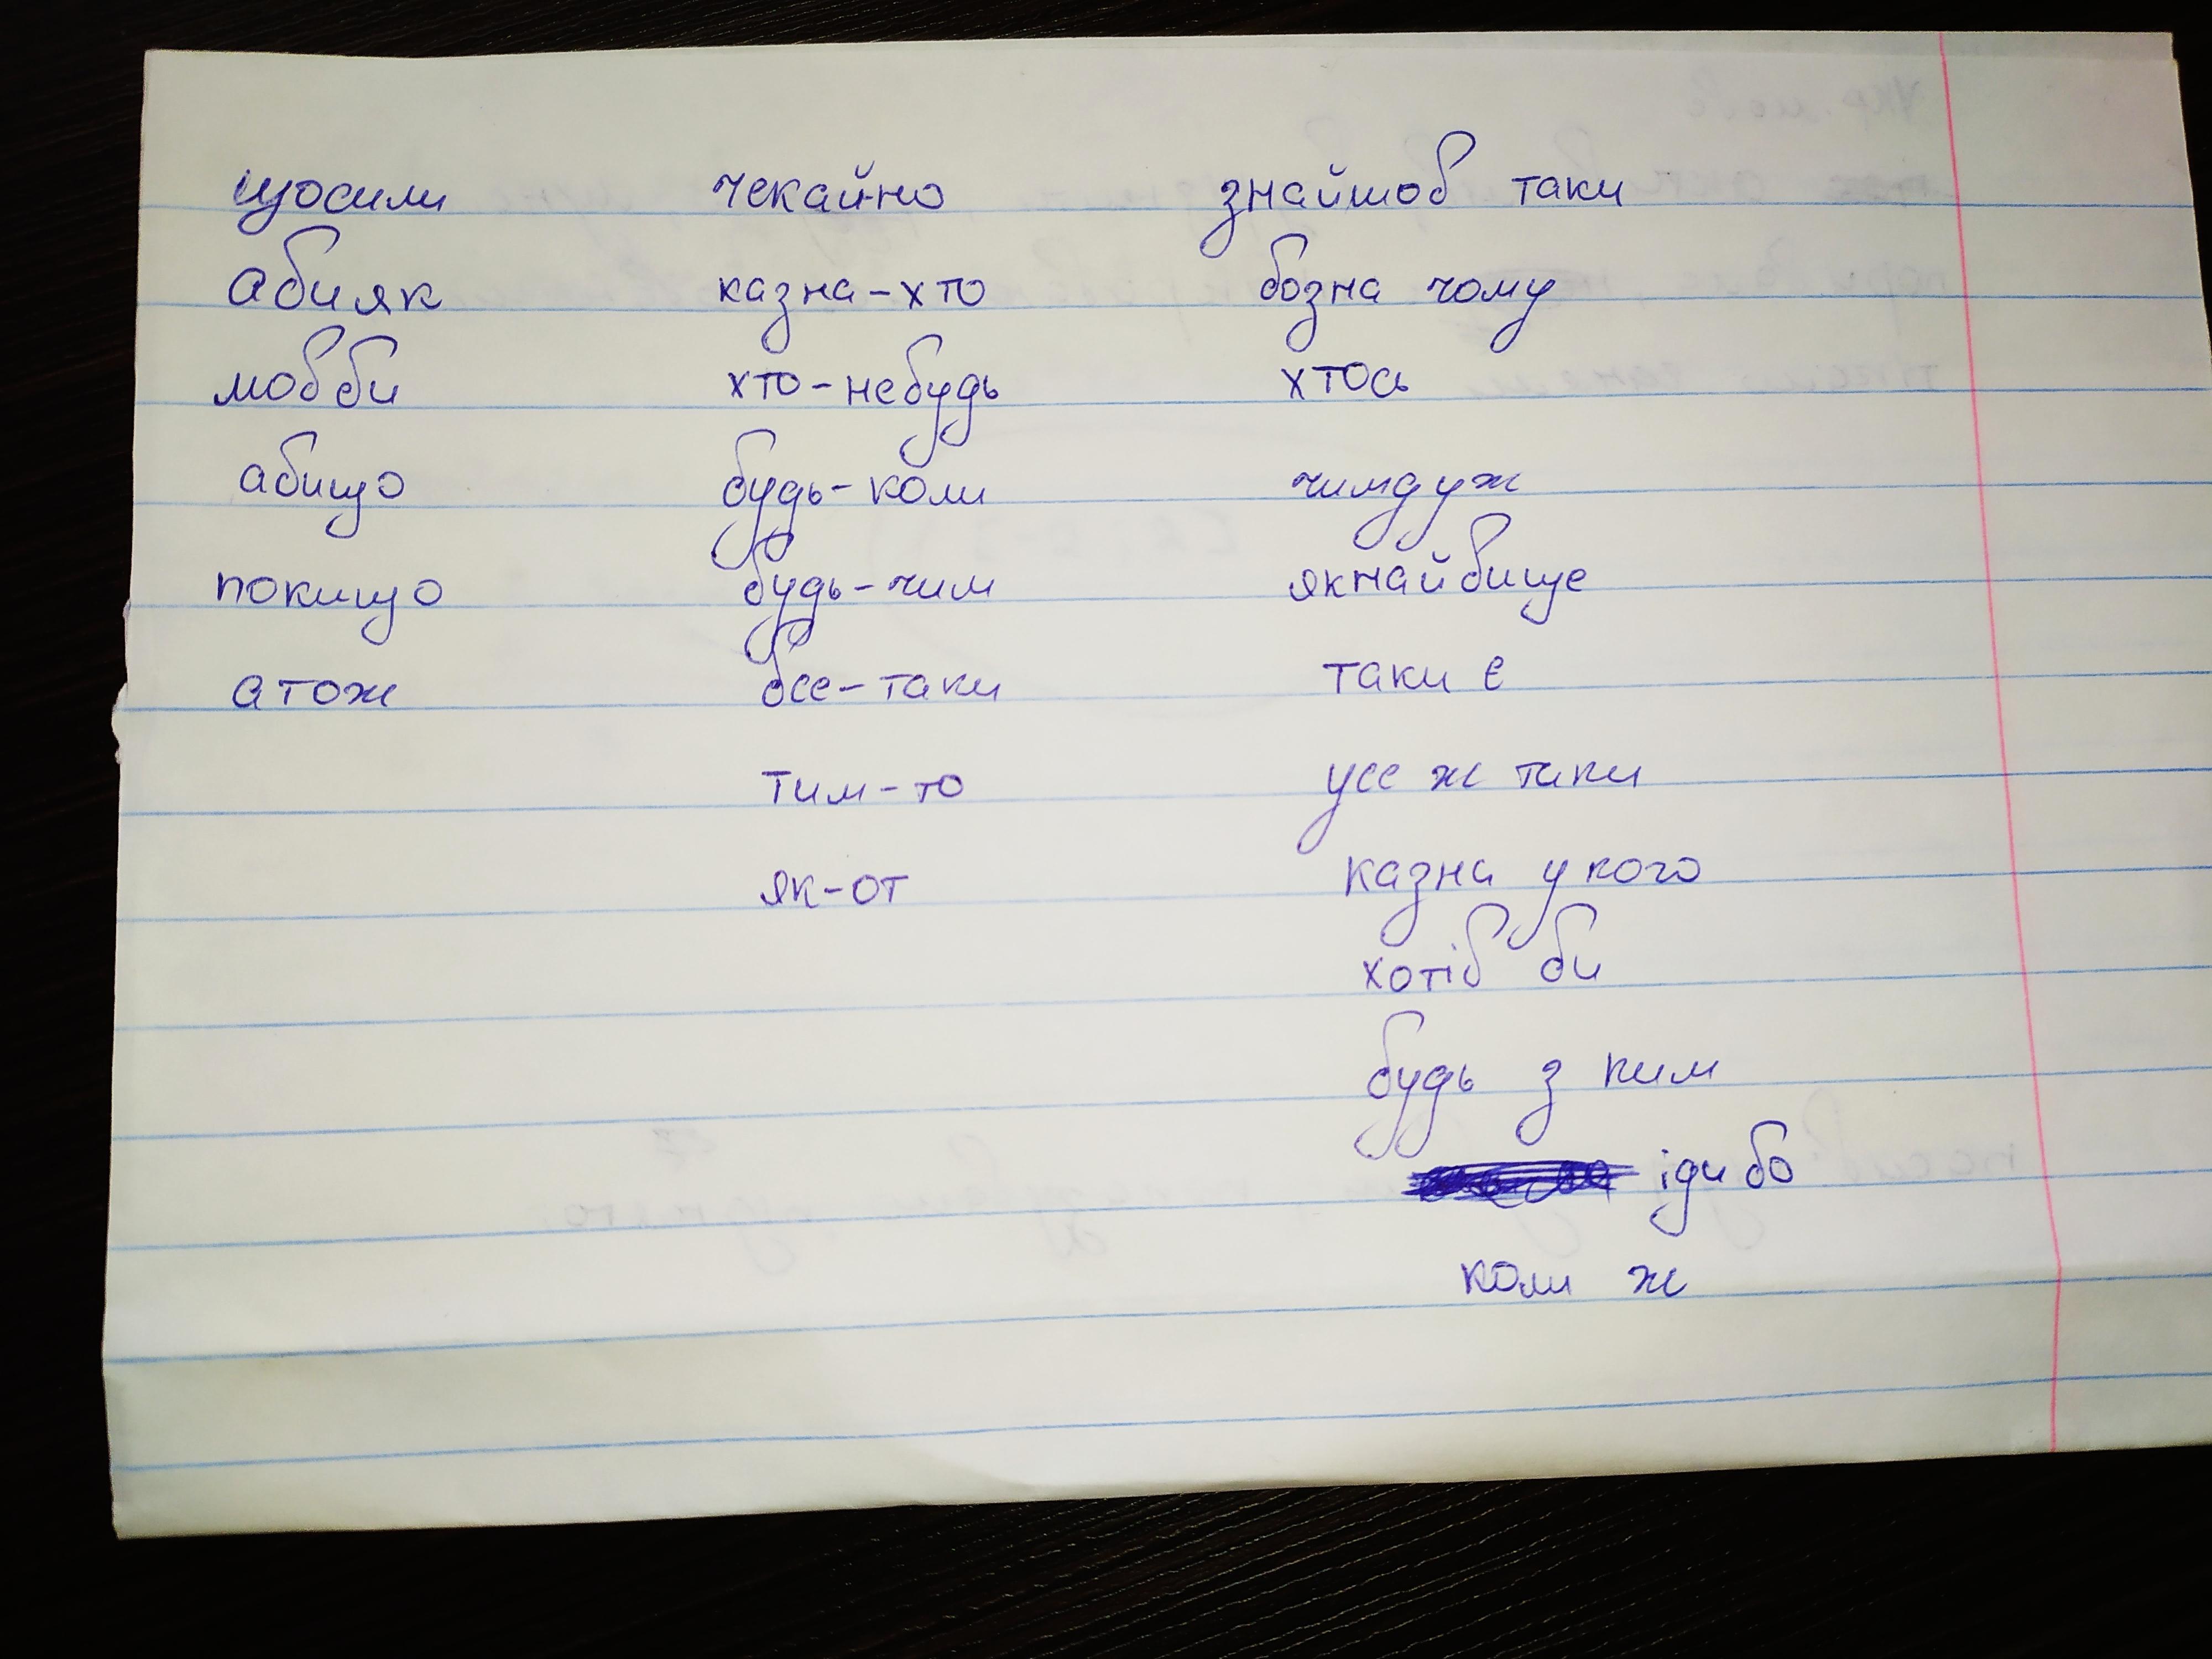 щосили чекайно знайшов таки
абияк казна-хто бозна чому
мовби хто-небудь хтось
абищо будь-коли чимдуж
покищо будь-чим якнайвище
атож все-таки таки є
тим-то усе ж таки
як-от казна у кого
хотів би
будь з ким
іди бо
коли ж